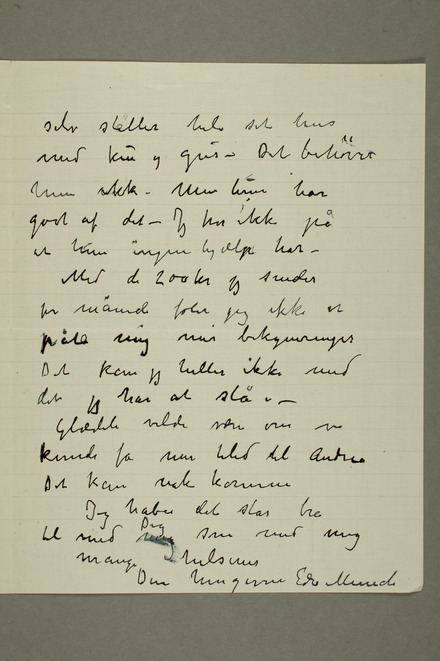 selv steller hele sit hus
med ku og gris – Det behöver
hun ikke – Men hun har
godt af det – Jeg har ikke på
at hun ingen hjælp har –
Med de 200 kr jeg sender
pr måned føler jeg ikke at
påta mig mere bekymringer
Det kan jeg heller ikke med
det jeg har at stå i –
Glædeligt vilde være om vi
kunde få mere bled til Andrea
Det kan nok komme
Jeg haber det står bra
til med Dig som med mig
mange hilsener
Din hengivne Edv Munch